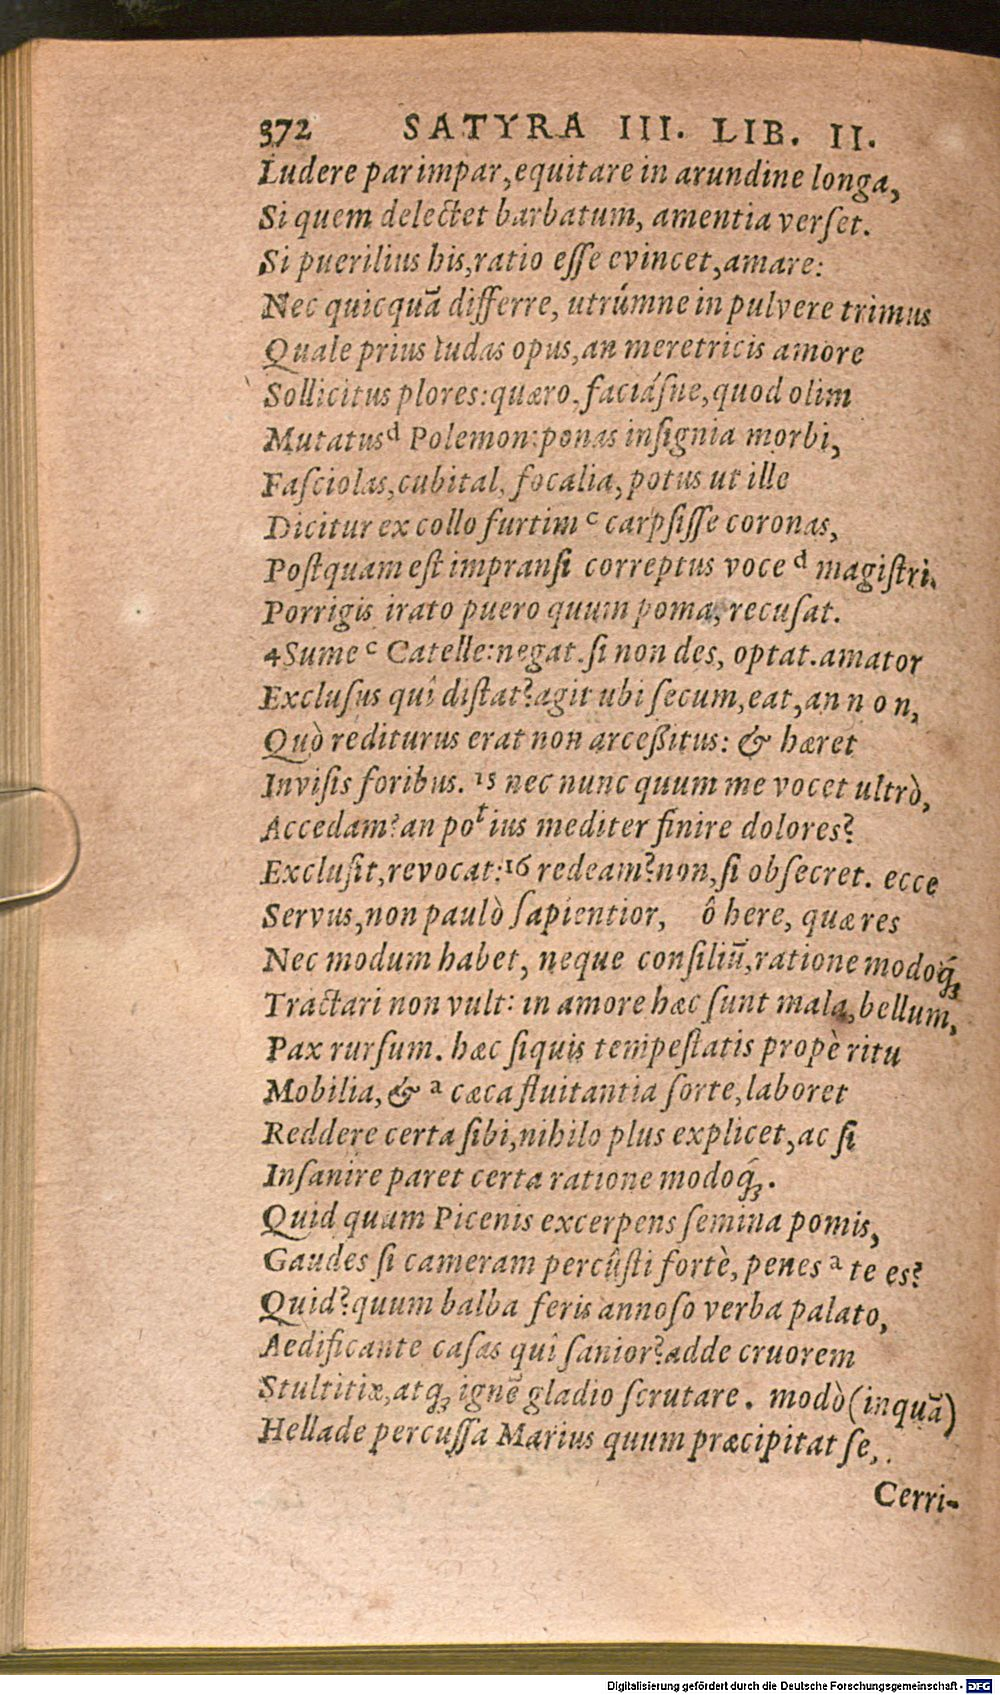 372 SATYRA III. LIB. II.
Ludere par impar, equitare in arundine longa,
Si quem delectet barbatum, amentia verſet.
Si puerilius his, ratio eſſe evincet, amare:
Nec quicquā differre, utrúmne in pulvere trimus
Quale prius ludas opus, an meretricis amore
Sollicitus plores: quæro, faciáſne, quod olim
Mutatus d Polemon: ponas inſignia morbi,
Faſciolas, cubital, focalia, potus ut ille
Dicitur ex collo furtim c carpſiſſe coronas,
Poſtquam eſt impranſi correptus voce d magiſtri.
Porrigis irato puero quum poma, recuſat.
4 Sume c Catelle: negat. ſi non des, optat. amator
Excluſus quî diſtat? agit ubi ſecum, eat, an non,
Quò rediturus erat non arceßitus: & hæret
Inviſis foribus. 15 nec nunc quum me vocet ultrò,
Accedam? an potius mediter finire dolores?
Excluſit, revocat: 16 redeam? non, ſi obſecret. ecce
Servus, non paulò ſapientior, ô here, quæ res
Nec modum habet, neque conſiliū, ratione modoq́ꝫ
Tractari non vult: in amore hæc ſunt mala, bellum,
Pax rurſum. hæc ſiquis tempeſtatis propè ritu
Mobilia, & a cæca fluitantia ſorte, laboret
Reddere certa ſibi, nihilo plus explicet, ac ſi
Inſanire paret certa ratione modoq́ꝫ.
Quid quum Picenis excerpens ſemina pomis,
Gaudes ſi cameram percûſti fortè, penes a te es?
Quid? quum balba feris annoſo verba palato,
Aedificante caſas quî ſanior? adde cruorem
Stultitiæ, atqꝫ ignē gladio ſcrutare. modò (inquā)
Hellade percuſſa Marius quum præcipitat ſe,
Cerri-
Digitalisierung gefördert durch die Deutsche Forschungsgemeinschaft - DFG